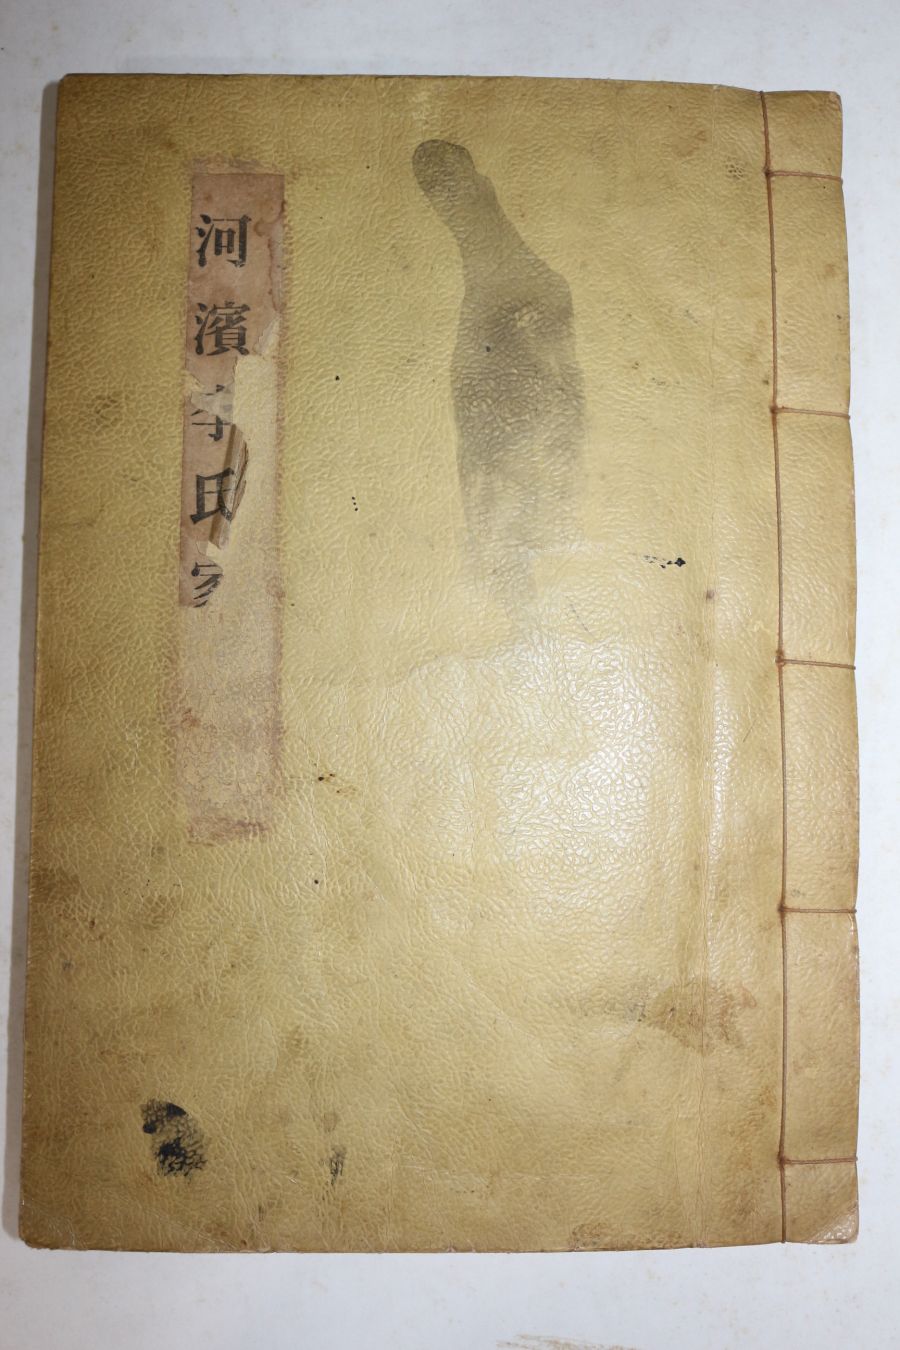 河濱李氏